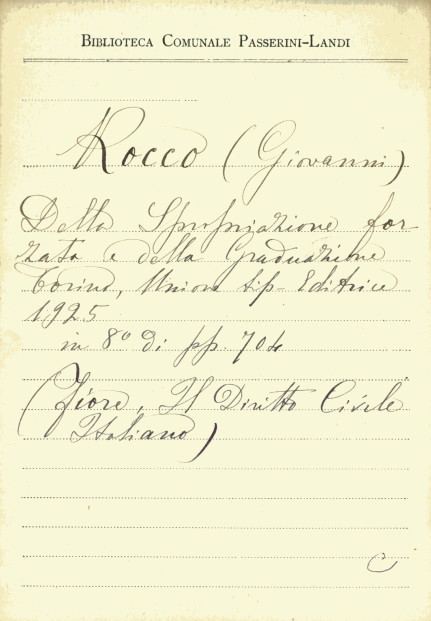 BIBLIOTECA COMUNALE PASSERINI-LANDI
Rocco (Giovanni)
Della Spropriazione for-
zata e della Graduazione
Torino, Unione tip- Editrice
1925
in 8° di pp. 704
(Fiore, Il Diritto Civile
Italiano)